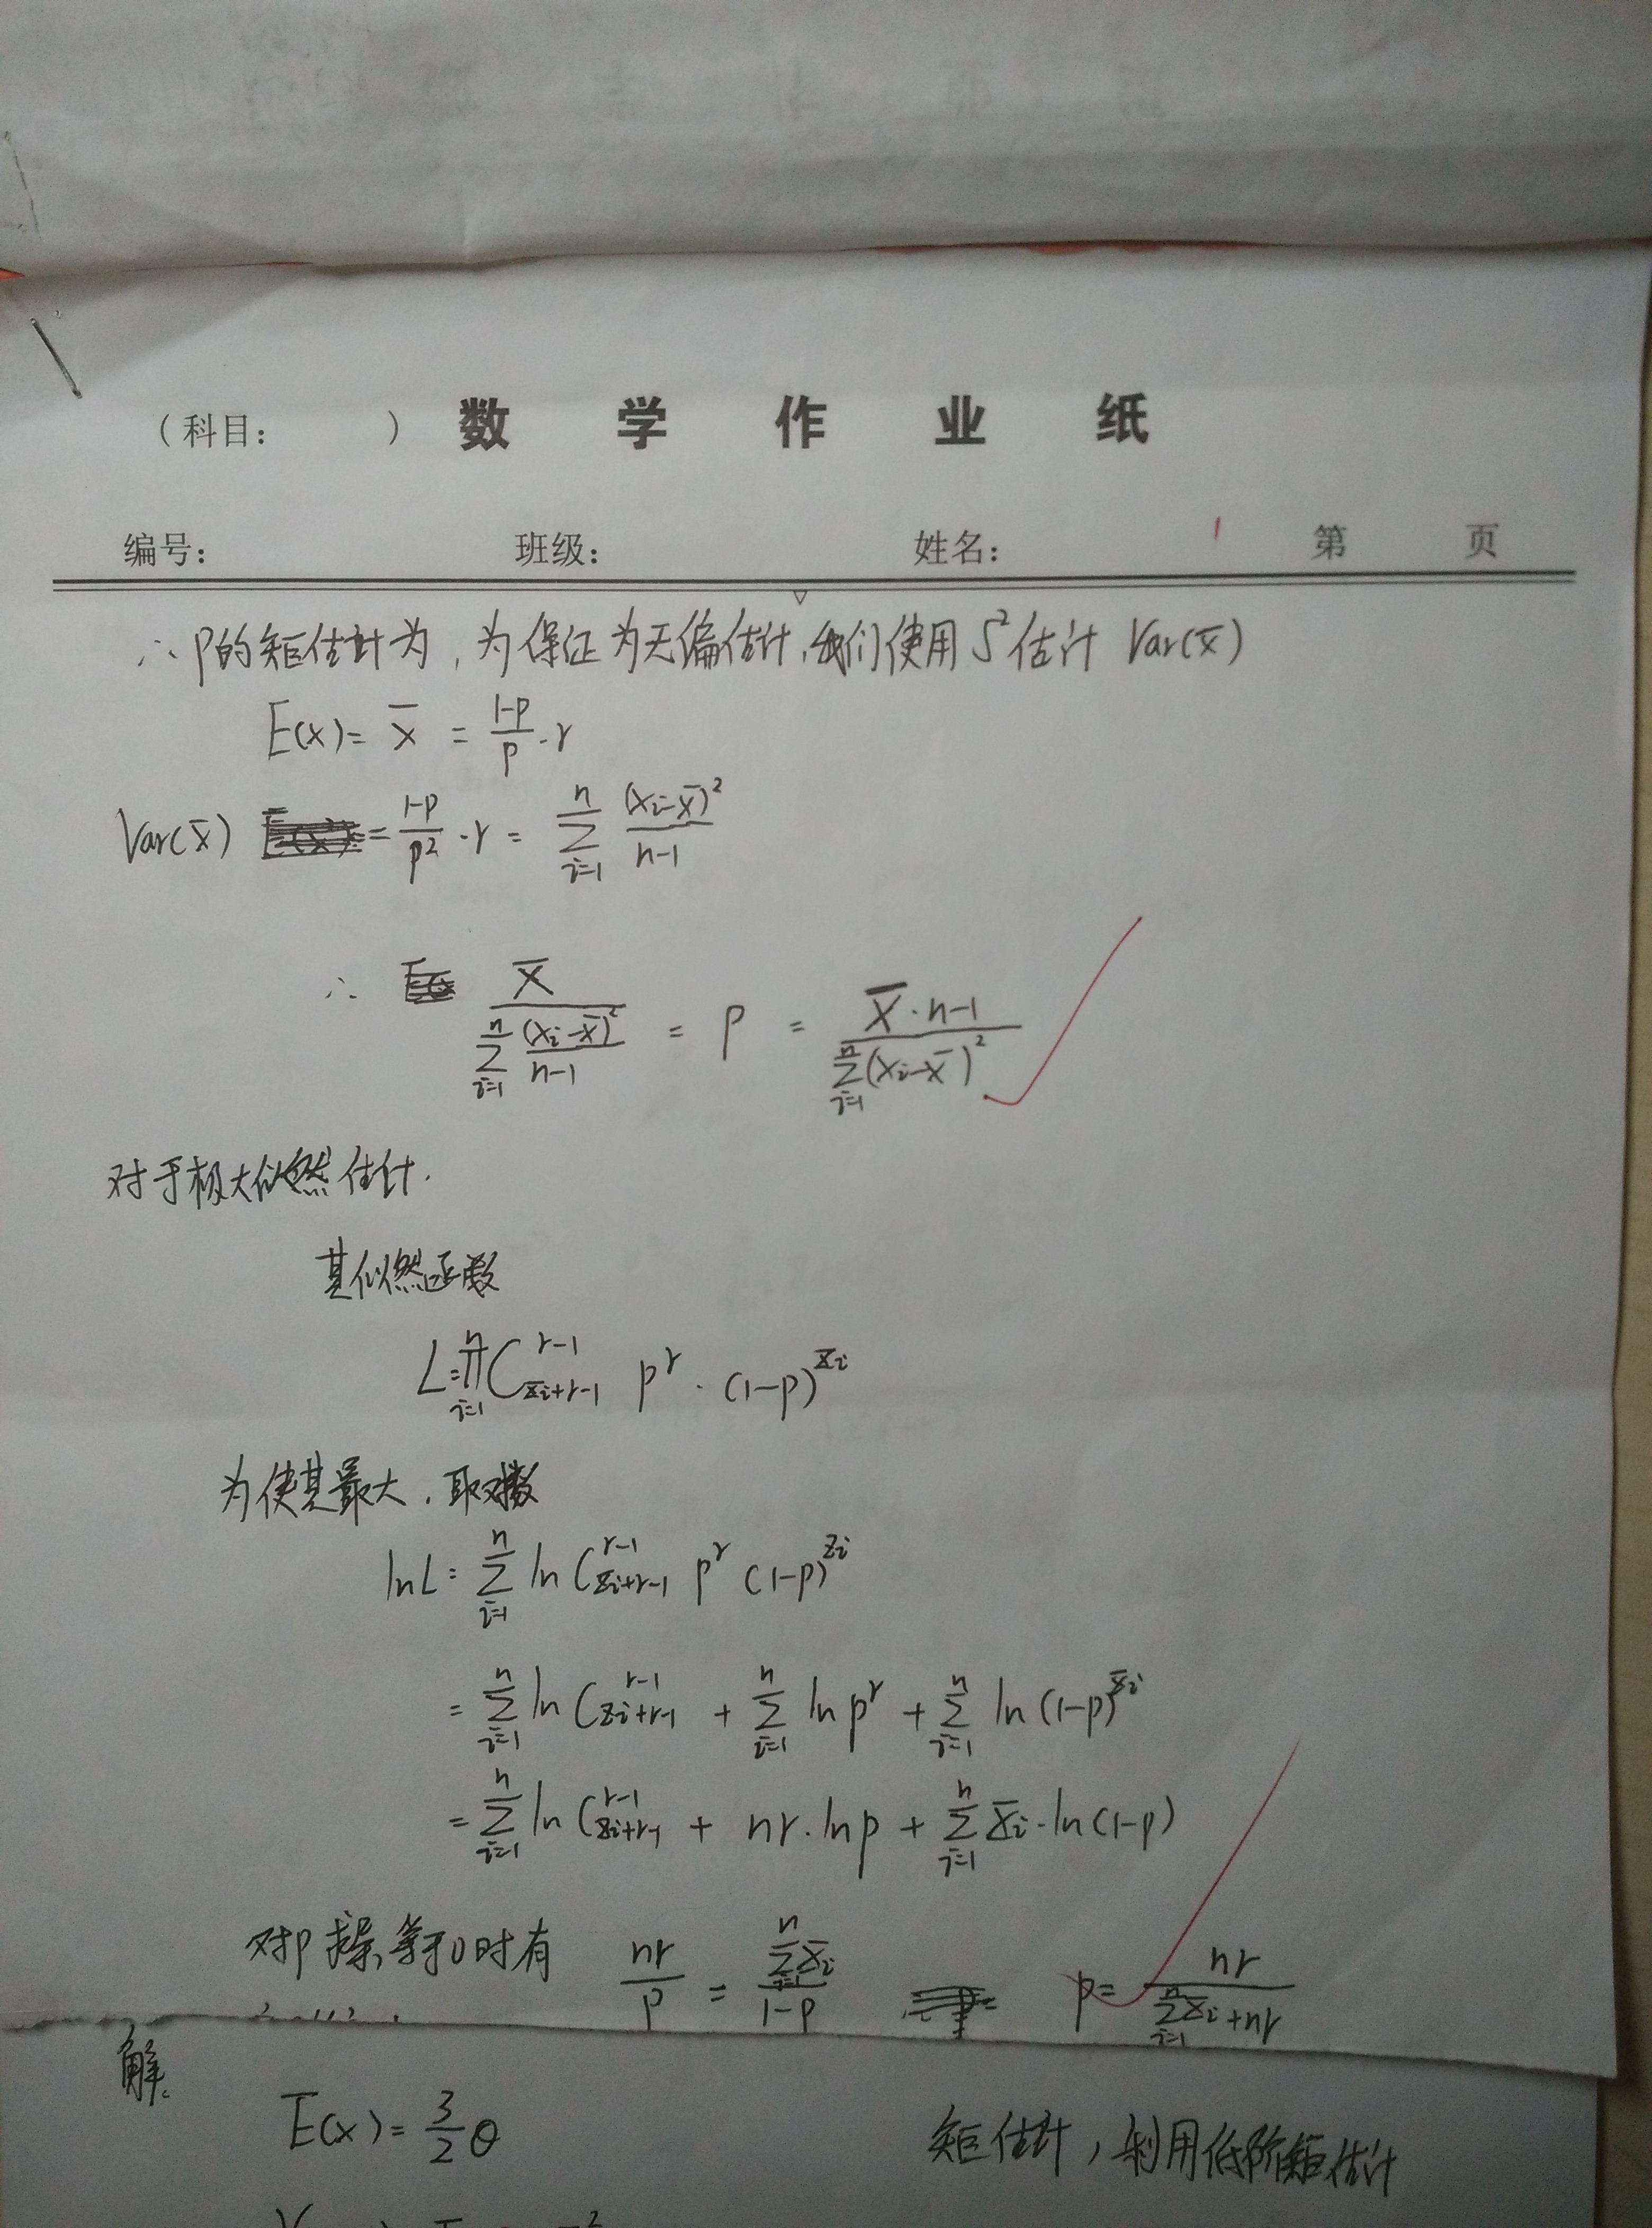 （科目：　　）数学作业纸
编号：　　班级：　　姓名：　　第　　页
∴ p的矩估计为，为保证为无偏估计，我们使用 S² 估计 Var(x̄)
E(x) = x̄ = (1-p)/p · r
Var(x̄) = (1-p)/p² · r = Σ_{i=1}^{n} (xi-x̄)²/(n-1)
∴ x̄ / (Σ_{i=1}^{n} (xi-x̄)²/(n-1)) = p = (x̄ · n-1) / (Σ_{i=1}^{n} (xi-x̄)²)
对于极大似然估计.
其似然函数
L = Π_{i=1}^{n} C_{xi+r-1}^{r-1} p^r · (1-p)^{xi}
为使其最大，取对数
lnL = Σ_{i=1}^{n} ln C_{xi+r-1}^{r-1} p^r (1-p)^{xi}
= Σ_{i=1}^{n} ln C_{xi+r-1}^{r-1} + Σ_{i=1}^{n} ln p^r + Σ_{i=1}^{n} ln (1-p)^{xi}
= Σ_{i=1}^{n} ln C_{xi+r-1}^{r-1} + nr · ln p + Σ_{i=1}^{n} xi · ln (1-p)
对p求导，等于0时有 nr/p = (Σ_{i=1}^{n} xi)/(1-p) p = nr/(Σ_{i=1}^{n} xi + nr)
解.
E(x) = 3/2 θ
矩估计，利用低阶矩估计